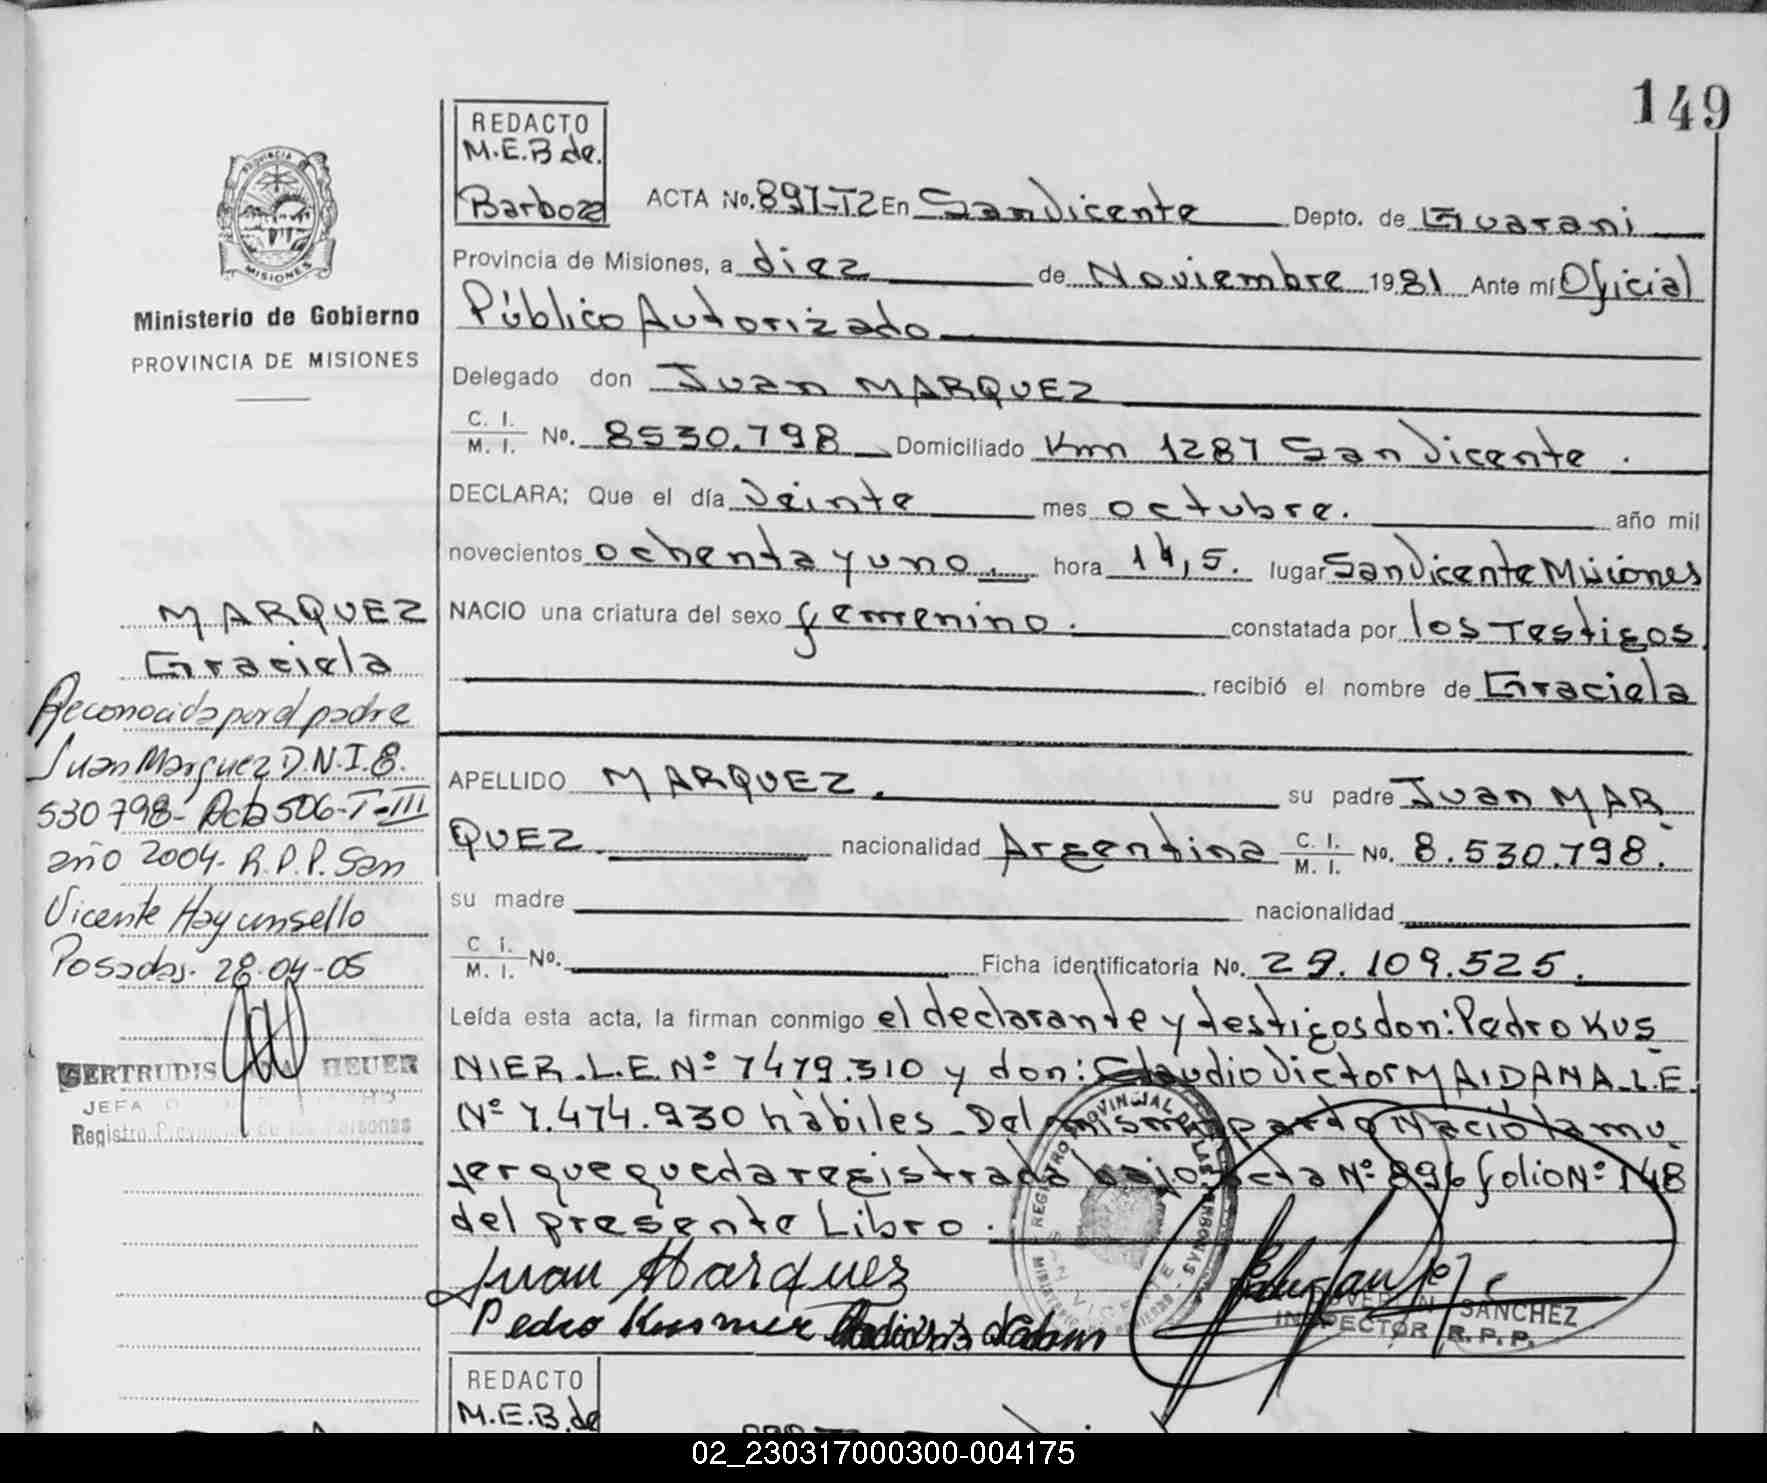 149
REDACTO
M.E.B de.
Barboza
ACTA No. 897-T2 En San Vicente Depto. de Guarani
Provincia de Misiones, a diez de Noviembre 1981 Ante mí Oficial
Público Autorizado
Delegado don Juan MARQUEZ
C. I.
M. I. No. 8530.798 Domiciliado Km 1287 San Vicente .
DECLARA; Que el día Veinte mes octubre. año mil
novecientos ochenta y uno. hora 14,5. lugar San Vicente Misiones
NACIO una criatura del sexo femenino. constatada por los Testigos
recibió el nombre de Graciela
APELLIDO MARQUEZ. su padre Juan MAR
QUEZ. nacionalidad Argentina C. I.
M. I. No. 8.530.798.
su madre nacionalidad
C. I.
M. I. No. Ficha identificatoria No. 29.109.525.
Leída esta acta, la firman conmigo el declarante y testigos don: Pedro KUS
NIER. L.E. Nº 7479.310 y don: Claudio Victor MAIDANA. L.E.
Nº 7.474.930 hàbiles. Del mismo parto Nació la mu
jer que queda registrada bajo acta Nº 896 folio Nº 148
del presente Libro.
Juan Marquez
Pedro Kusnier
SANCHEZ
INSPECTOR R.P.P.
REGISTRO PROVINCIAL DE LAS PERSONAS
PROVINCIA DE
MISIONES
Ministerio de Gobierno
PROVINCIA DE MISIONES
MARQUEZ
Graciela
Reconocida por el padre
Juan Marquez D.N.I. 8.
530 798- Acta 506-T-III
año 2004- R.P.P. San
Vicente Hay un sello
Posadas. 28-04-05
GERTRUDIS HEUER
JEFA
Registro Provincial de las Personas
REDACTO
M.E.B. de
02_230317000300-004175